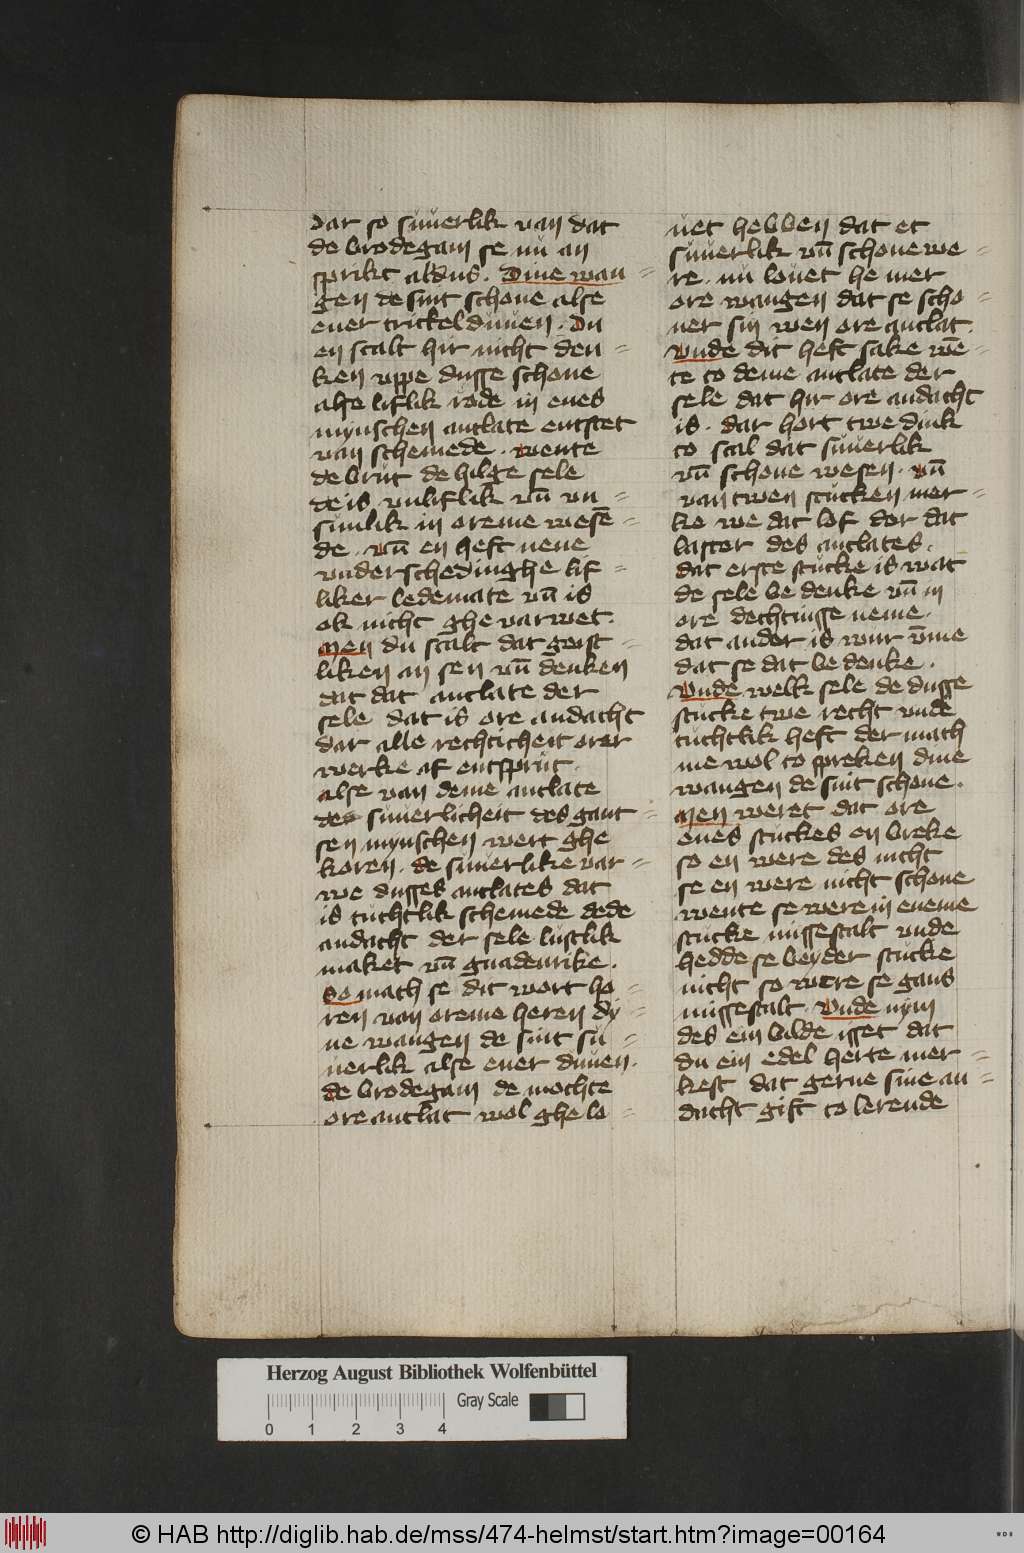 dar so suuerlik van dat
de brodegam se nu an
sprikt aldus. Dine wan=
gen de sint schone alse
ener trickelduuen. Du
en scalt hir nicht den=
ken vppe dusse schone
alse liflik rode in enes
mynschen antlate entstet
van schemede. wente
de brut de hilge sele
de is vnliflik vn̄ vn=
sunlik in oreme wesē=
de. vn̄ en heft nene
vnderschedinghe lif=
liker ledemate vn̄ is
ok nicht ghe varwet.
Men du scalt dat geist=
liken an sen vn̄ denken
dat dat antlate der
sele dat is ore andacht
dar alle rechticheit orer
werke af entsprut.
alse van deme antlate
de suuerlicheit des gant=
sen mynschen wert ghe
koren. de suuerlike var=
we dusses antlates dat
is tuchtlik schemede dede
andacht der sele lustlik
maket vn̄ gnadenrike.
So mach se dit wort ho=
ren van oreme heren dy=
ne wangen de sint su=
uerlik alse ener duuen.
de brodegam de mochte
ore antlat wol ghe lo=
uet hebben dat et
suuerlik vn̄ schone we=
re. nu louet he mer
ore wangen dat se scho=
ner sin wen ore antlat.
Vnde dit heft sake wē=
te to deme antlate der
sele dat hir ore andacht
is. dar hort twe dink
to scal dat suuerlik
vn̄ schone wesen. vn̄
van twen stucken mer=
ke we dat lof der dat
laster des antlates.
dat erste stucke is wat
de sele be denke vn̄ in
ore dechtnisse neme.
dat ander is wur v̄me
dat se dat be denke.
Vnde welk sele de dusse
stucke twe recht vnde
tuchtlik heft der mach
me wol to spreken dine
wangen de sint schone.
Men weret dat ore
enes stuckes en breke
so en were des nicht
se en were nicht schone
wente se were in eneme
stucke missestalt vnde
hedde se beyder stucke
nicht so were se gans
missestalt. Vnde nym
des ein bilde isset dat
du ein edel herte mer=
kest dat gerne sine an=
dacht gift to lerende
Herzog August Bibliothek Wolfenbüttel
Gray Scale
0 1 2 3 4
© HAB http://diglib.hab.de/mss/474-helmst/start.htm?image=00164